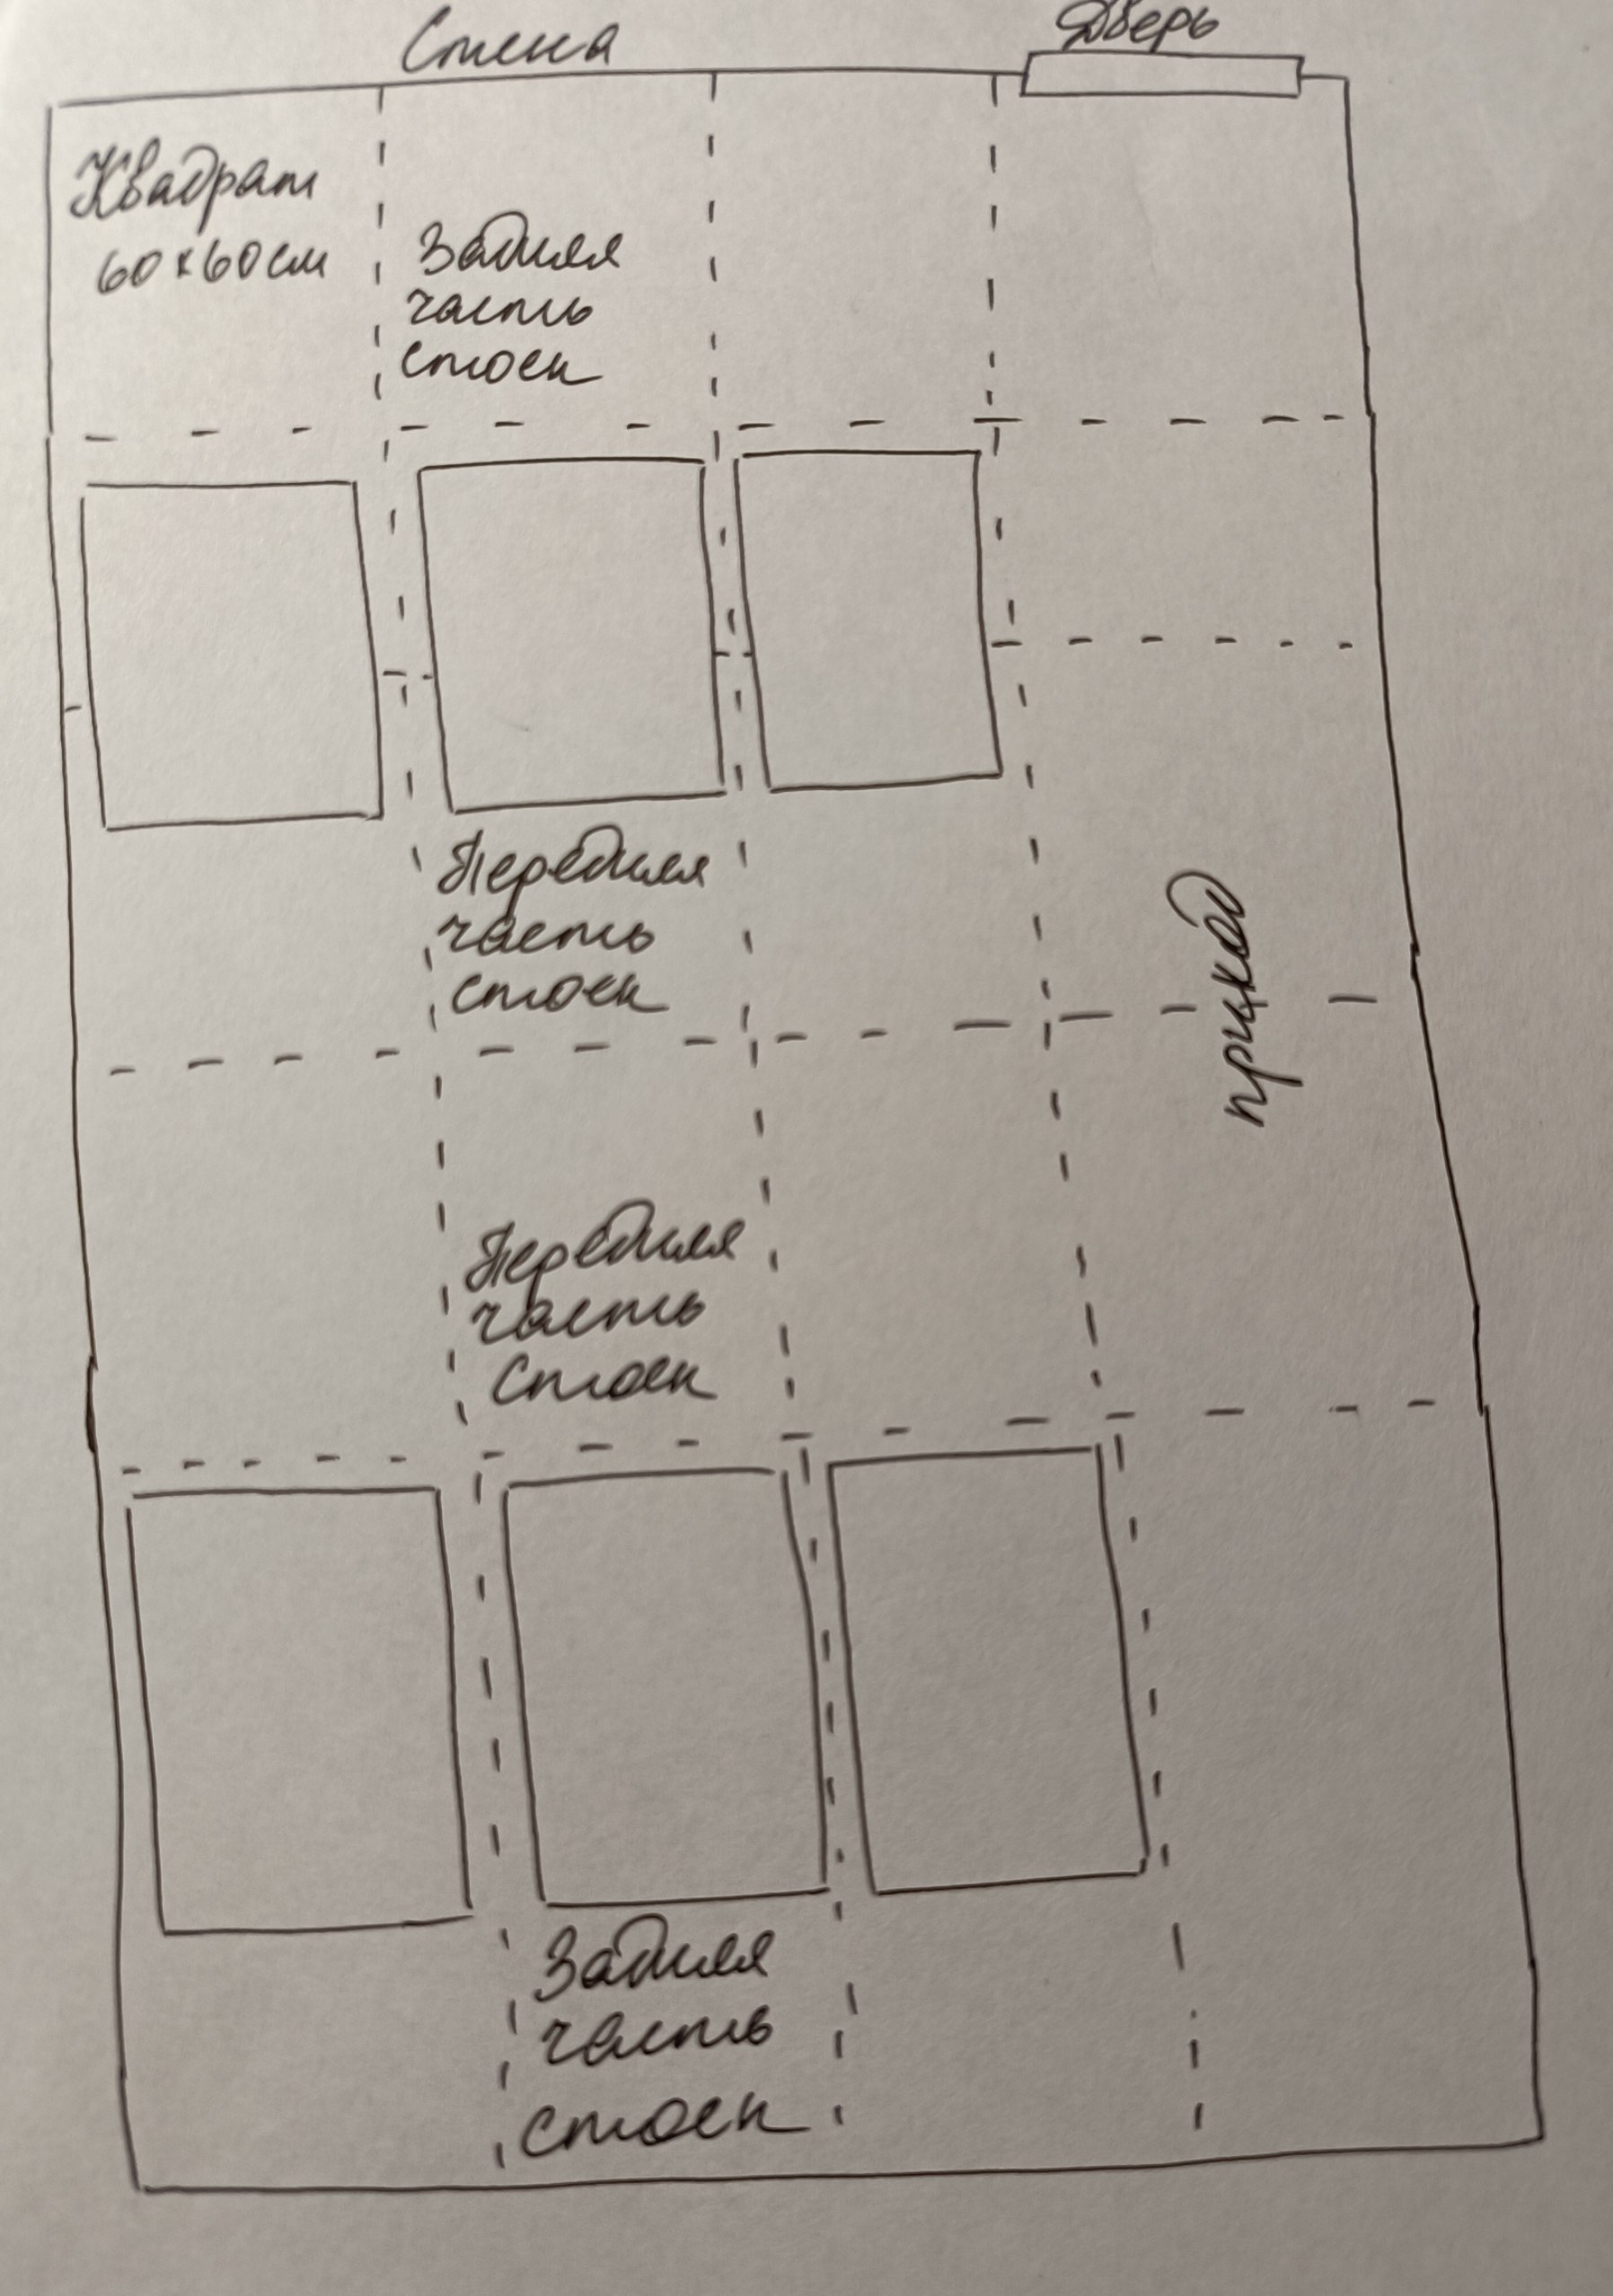 Стена
Дверь
Квадрат
60x60см
Задняя
часть
стоек
Передняя
часть
стоек
приход
Передняя
часть
стоек
Задняя
часть
стоек